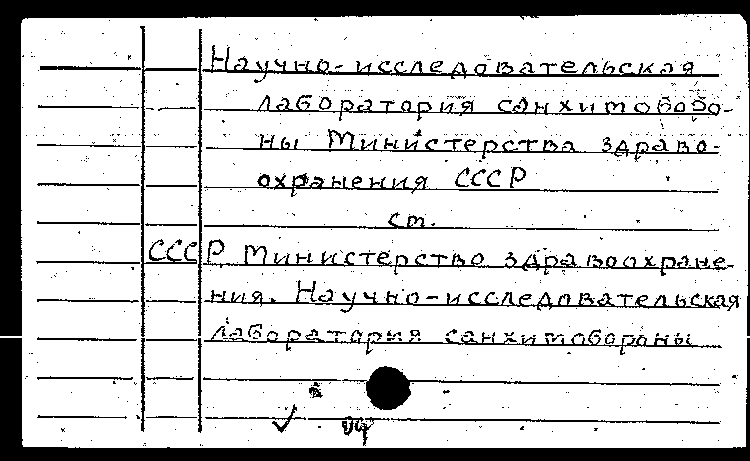 Научно-исследовательская
лаборатория санхимоборо-
ны Министерства здраво-
охранения СССР
см.
СССР Министерство здравоохране-
ния. Научно-исследовательская
лаборатория санхимобороны